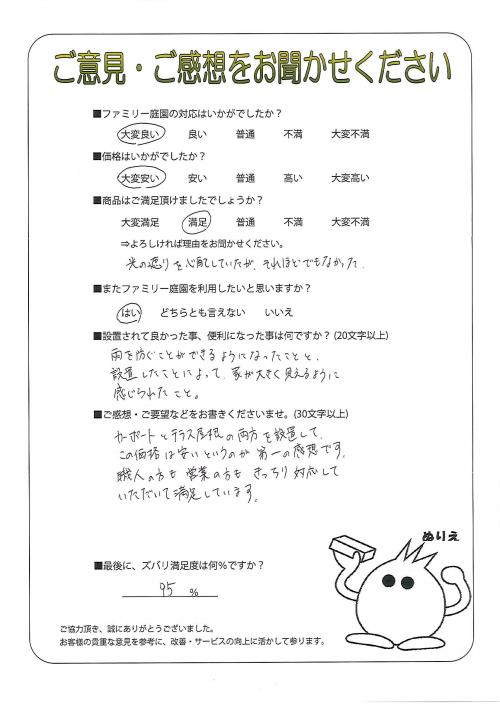 ご意見・ご感想をお聞かせください
■ファミリー庭園の対応はいかがでしたか？
大変良い 良い 普通 不満 大変不満
■価格はいかがでしたか？
大変安い 安い 普通 高い 大変高い
■商品はご満足頂けましたでしょうか？
大変満足 満足 普通 不満 大変不満
⇒よろしければ理由をお聞かせください。
光の遮りを心配していたが、それほどでもなかった.
■またファミリー庭園を利用したいと思いますか？
はい どちらとも言えない いいえ
■設置されて良かった事、便利になった事は何ですか？(20文字以上)
雨を防ぐことができるようになったことと、
設置したことによって、家が大きく見えるように
感じられたこと。
■ご感想・ご要望などをお書きくださいませ。(30文字以上)
カーポートとテラス屋根の両方を設置して、
この価格は安いというのが第一の感想です。
職人の方も営業の方もきっちり対応して
いただいて満足しています。
ぬりえ
■最後に、ズバリ満足度は何%ですか？
95 %
ご協力頂き、誠にありがとうございました。
お客様の貴重な意見を参考に、改善・サービスの向上に活かして参ります。